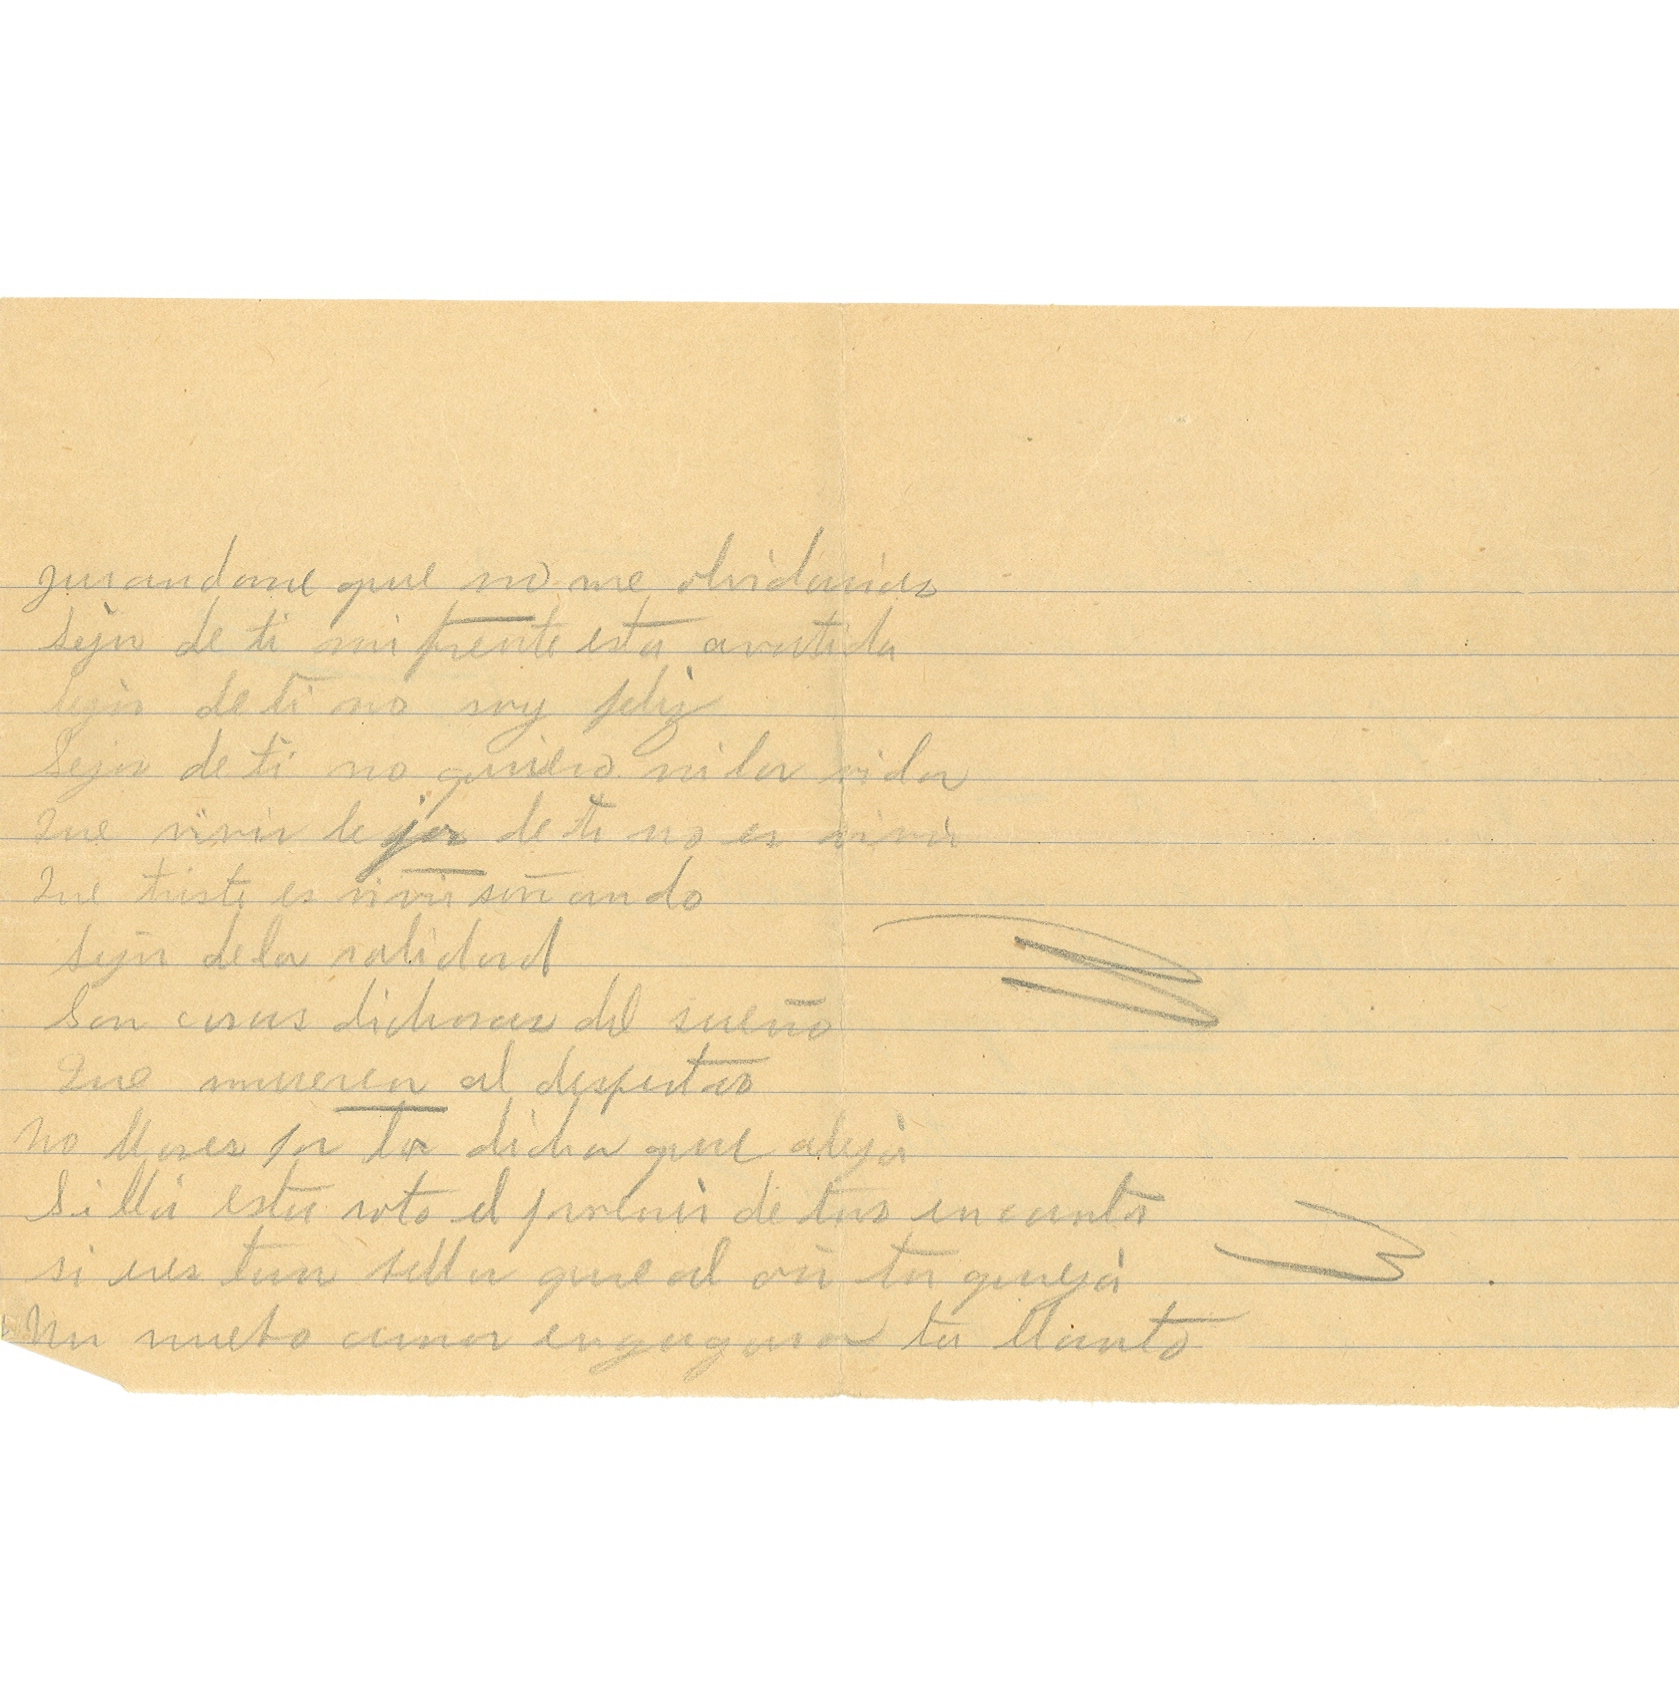 jurandome que no me olvidarias
lejos de ti mi frente esta avatida
lejos de ti no soy feliz
lejos de ti no quiero ni la vida
Que vivir lejos de ti no es vivir
Que triste es vivir soñando
lejos dela ralidad
Son cosas dichosas del sueño
Que mueren al despertar
No llores por tu dicha que aleja
Si lla esta roto el porvenir de tus encantos
si eres tan bella que al oir tu queja
Un nuebo amor enguguara tu llanto